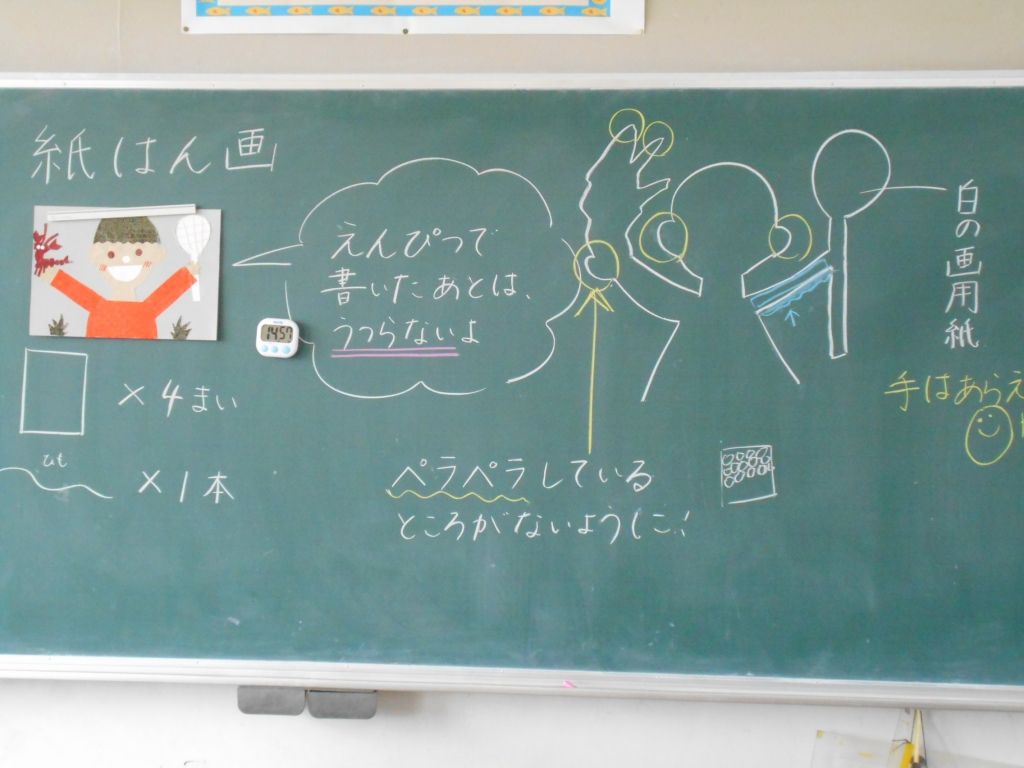 紙はん画
えんぴつで
書いたあとは、
うつらないよ
14:57
×4まい
ひも
×1本
ペラペラしている
ところがないように!
白の画用紙
手はあらえ